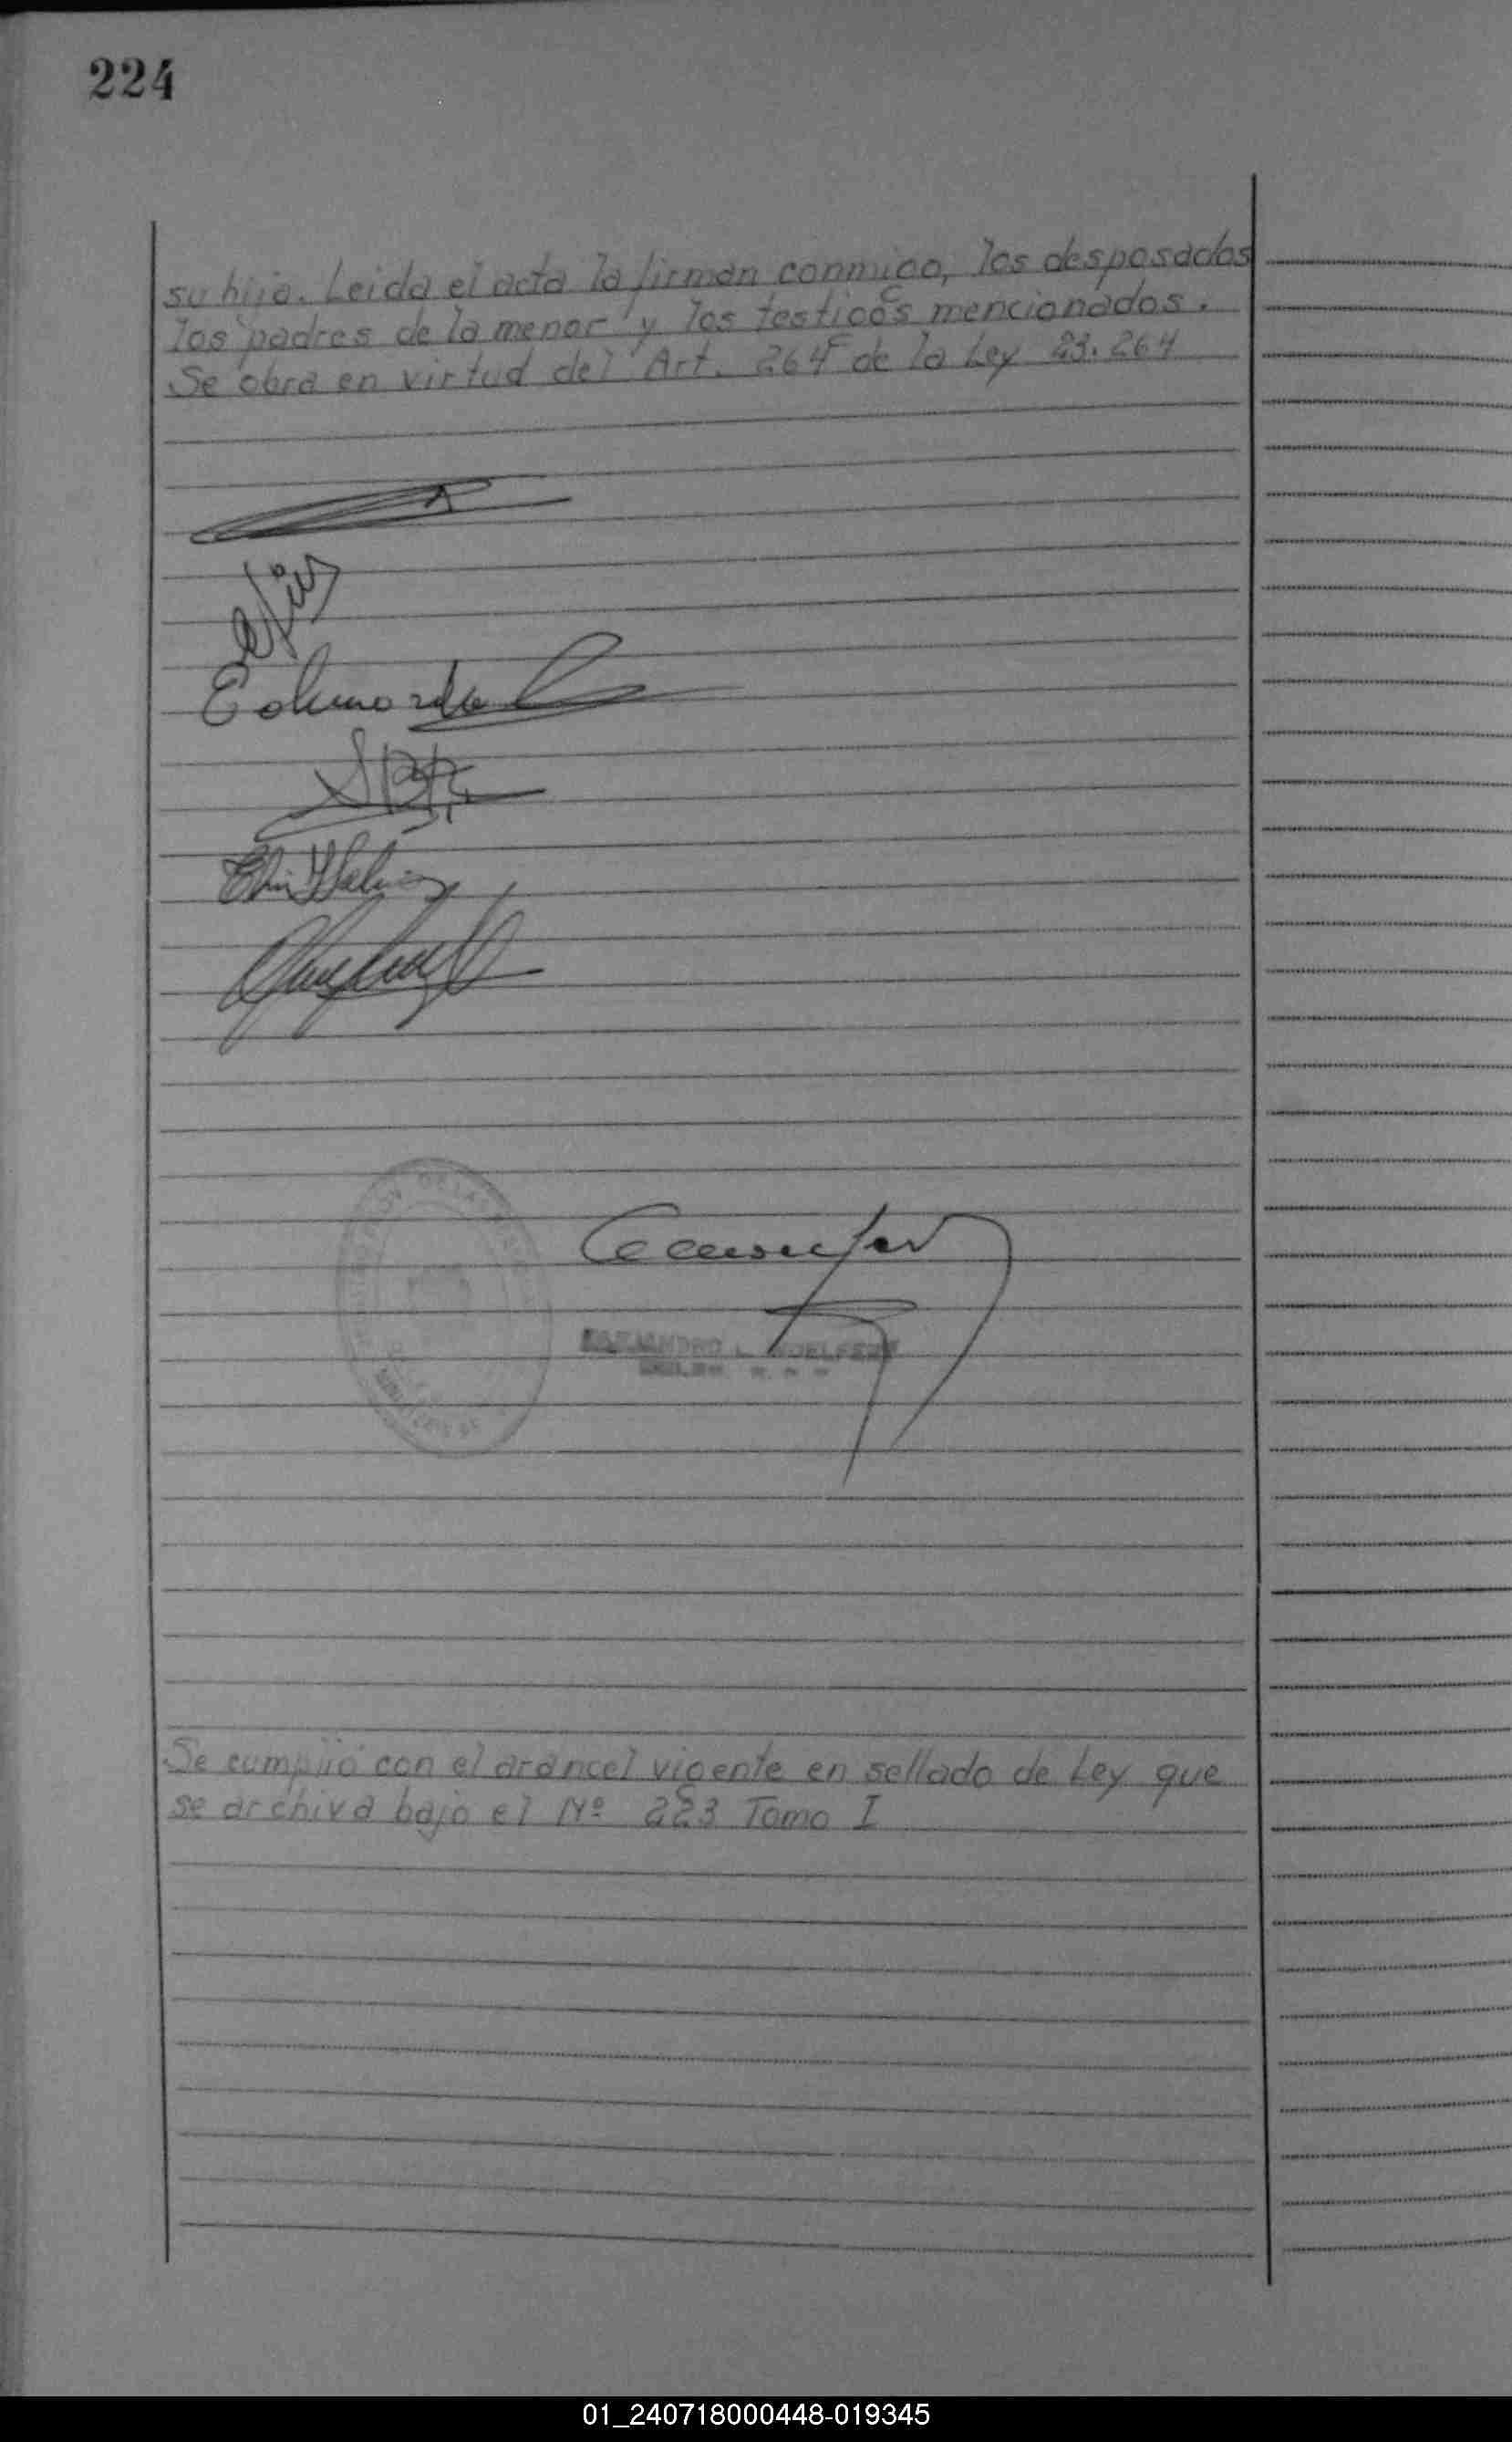 224
su hija. Leida el acta la firman conmigo, los desposados
los padres de la menor y los testigos mencionados.
Se obra en virtud del Art. 264 de la Ley 23.264
Se cumplió con el arancel vigente en sellado de Ley que
se archiva bajo el Nº 223 Tomo I
01_240718000448-019345